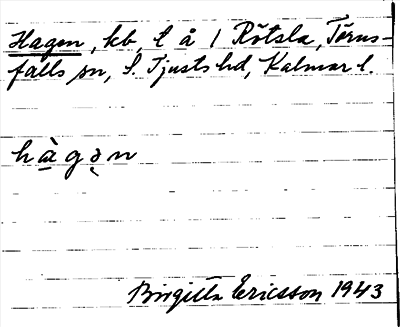 Hagen, kb, l å 1 Rötsla, Törns-
falls sn, S. Tjusts hd, Kalmar l.
hàgən
Birgitta Ericsson 1943